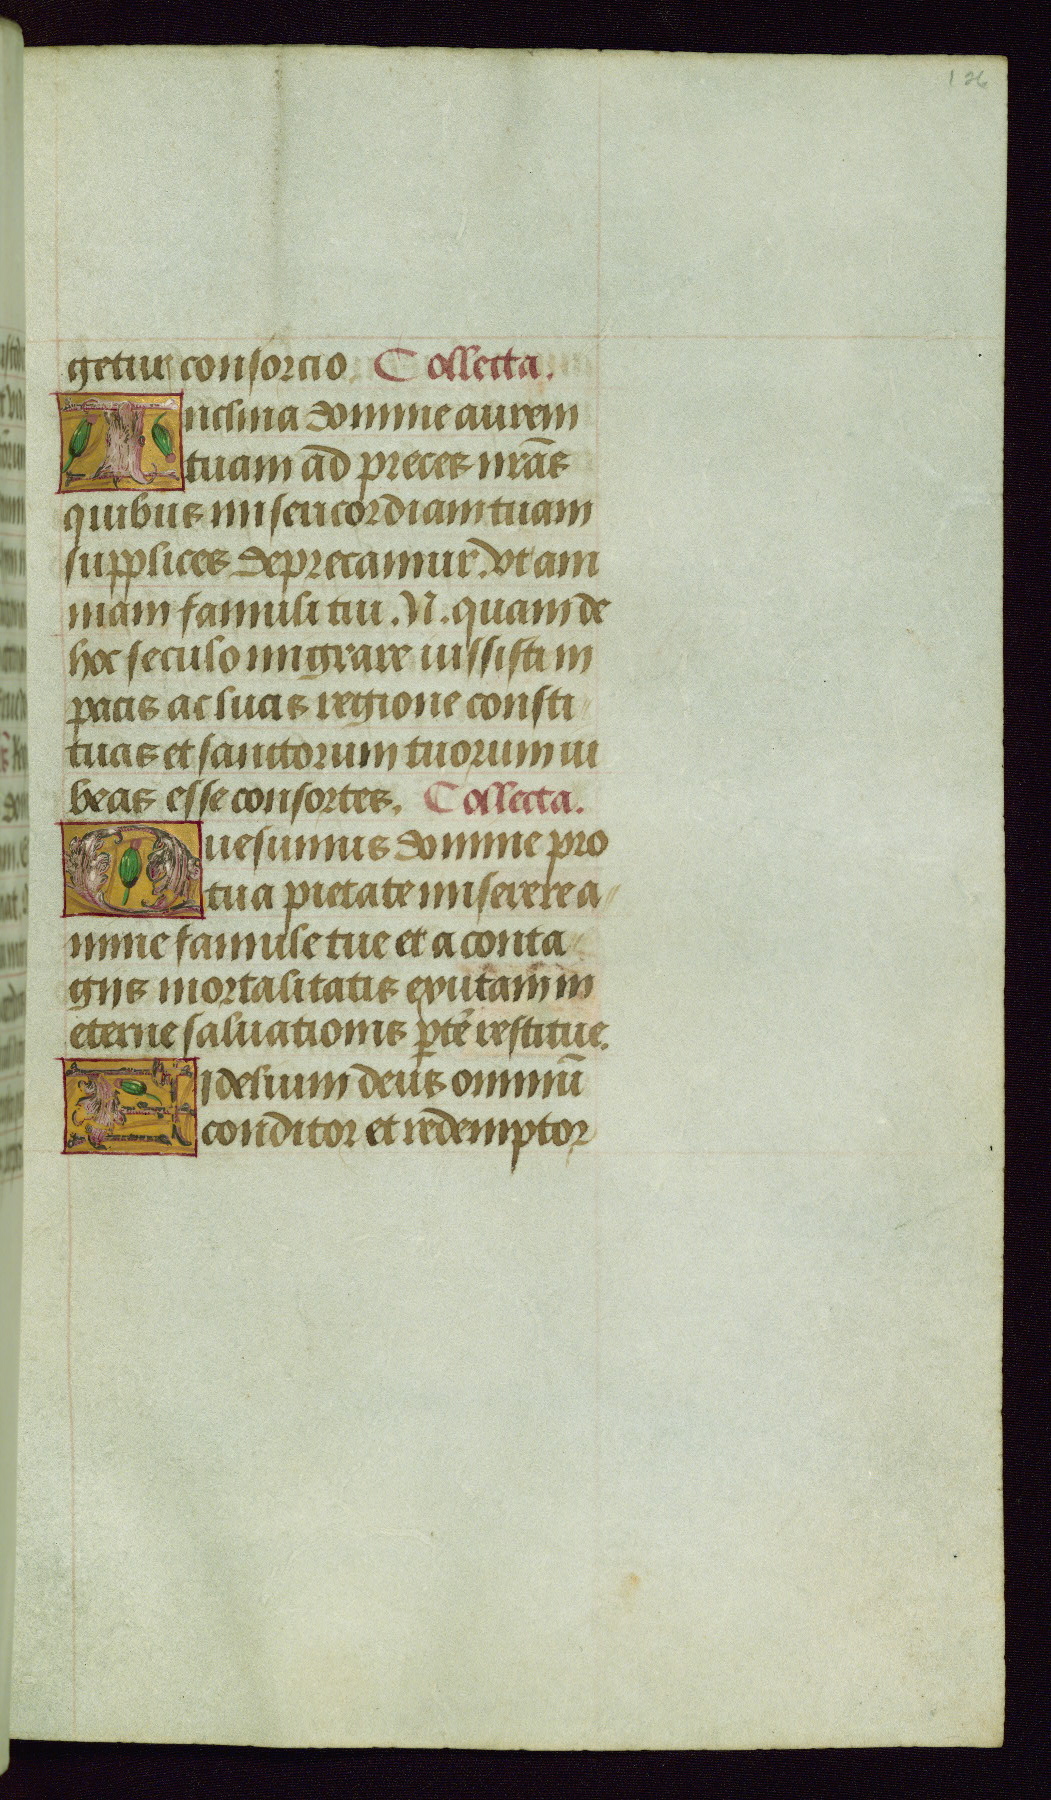 126
getur consorcio. Collecta.
Inclina domine aurem
tuam ad preces nrãs
quibus misericordiam tuam
supplices deprecamur. vt am
mam famuli tui .N. quam de
hoc seculo migrare iussisti in
pacis ac lucis regione consti
tuas et sanctorum tuorum iu
beas esse consortes. Collecta.
Quesumus domine pro
tua pietate miserere a
nime famule tue et a conta
gijs mortalitatis exutam in
eterne saluationis ptẽ restitue.
Fidelium deus omniũ
conditor et redemptor